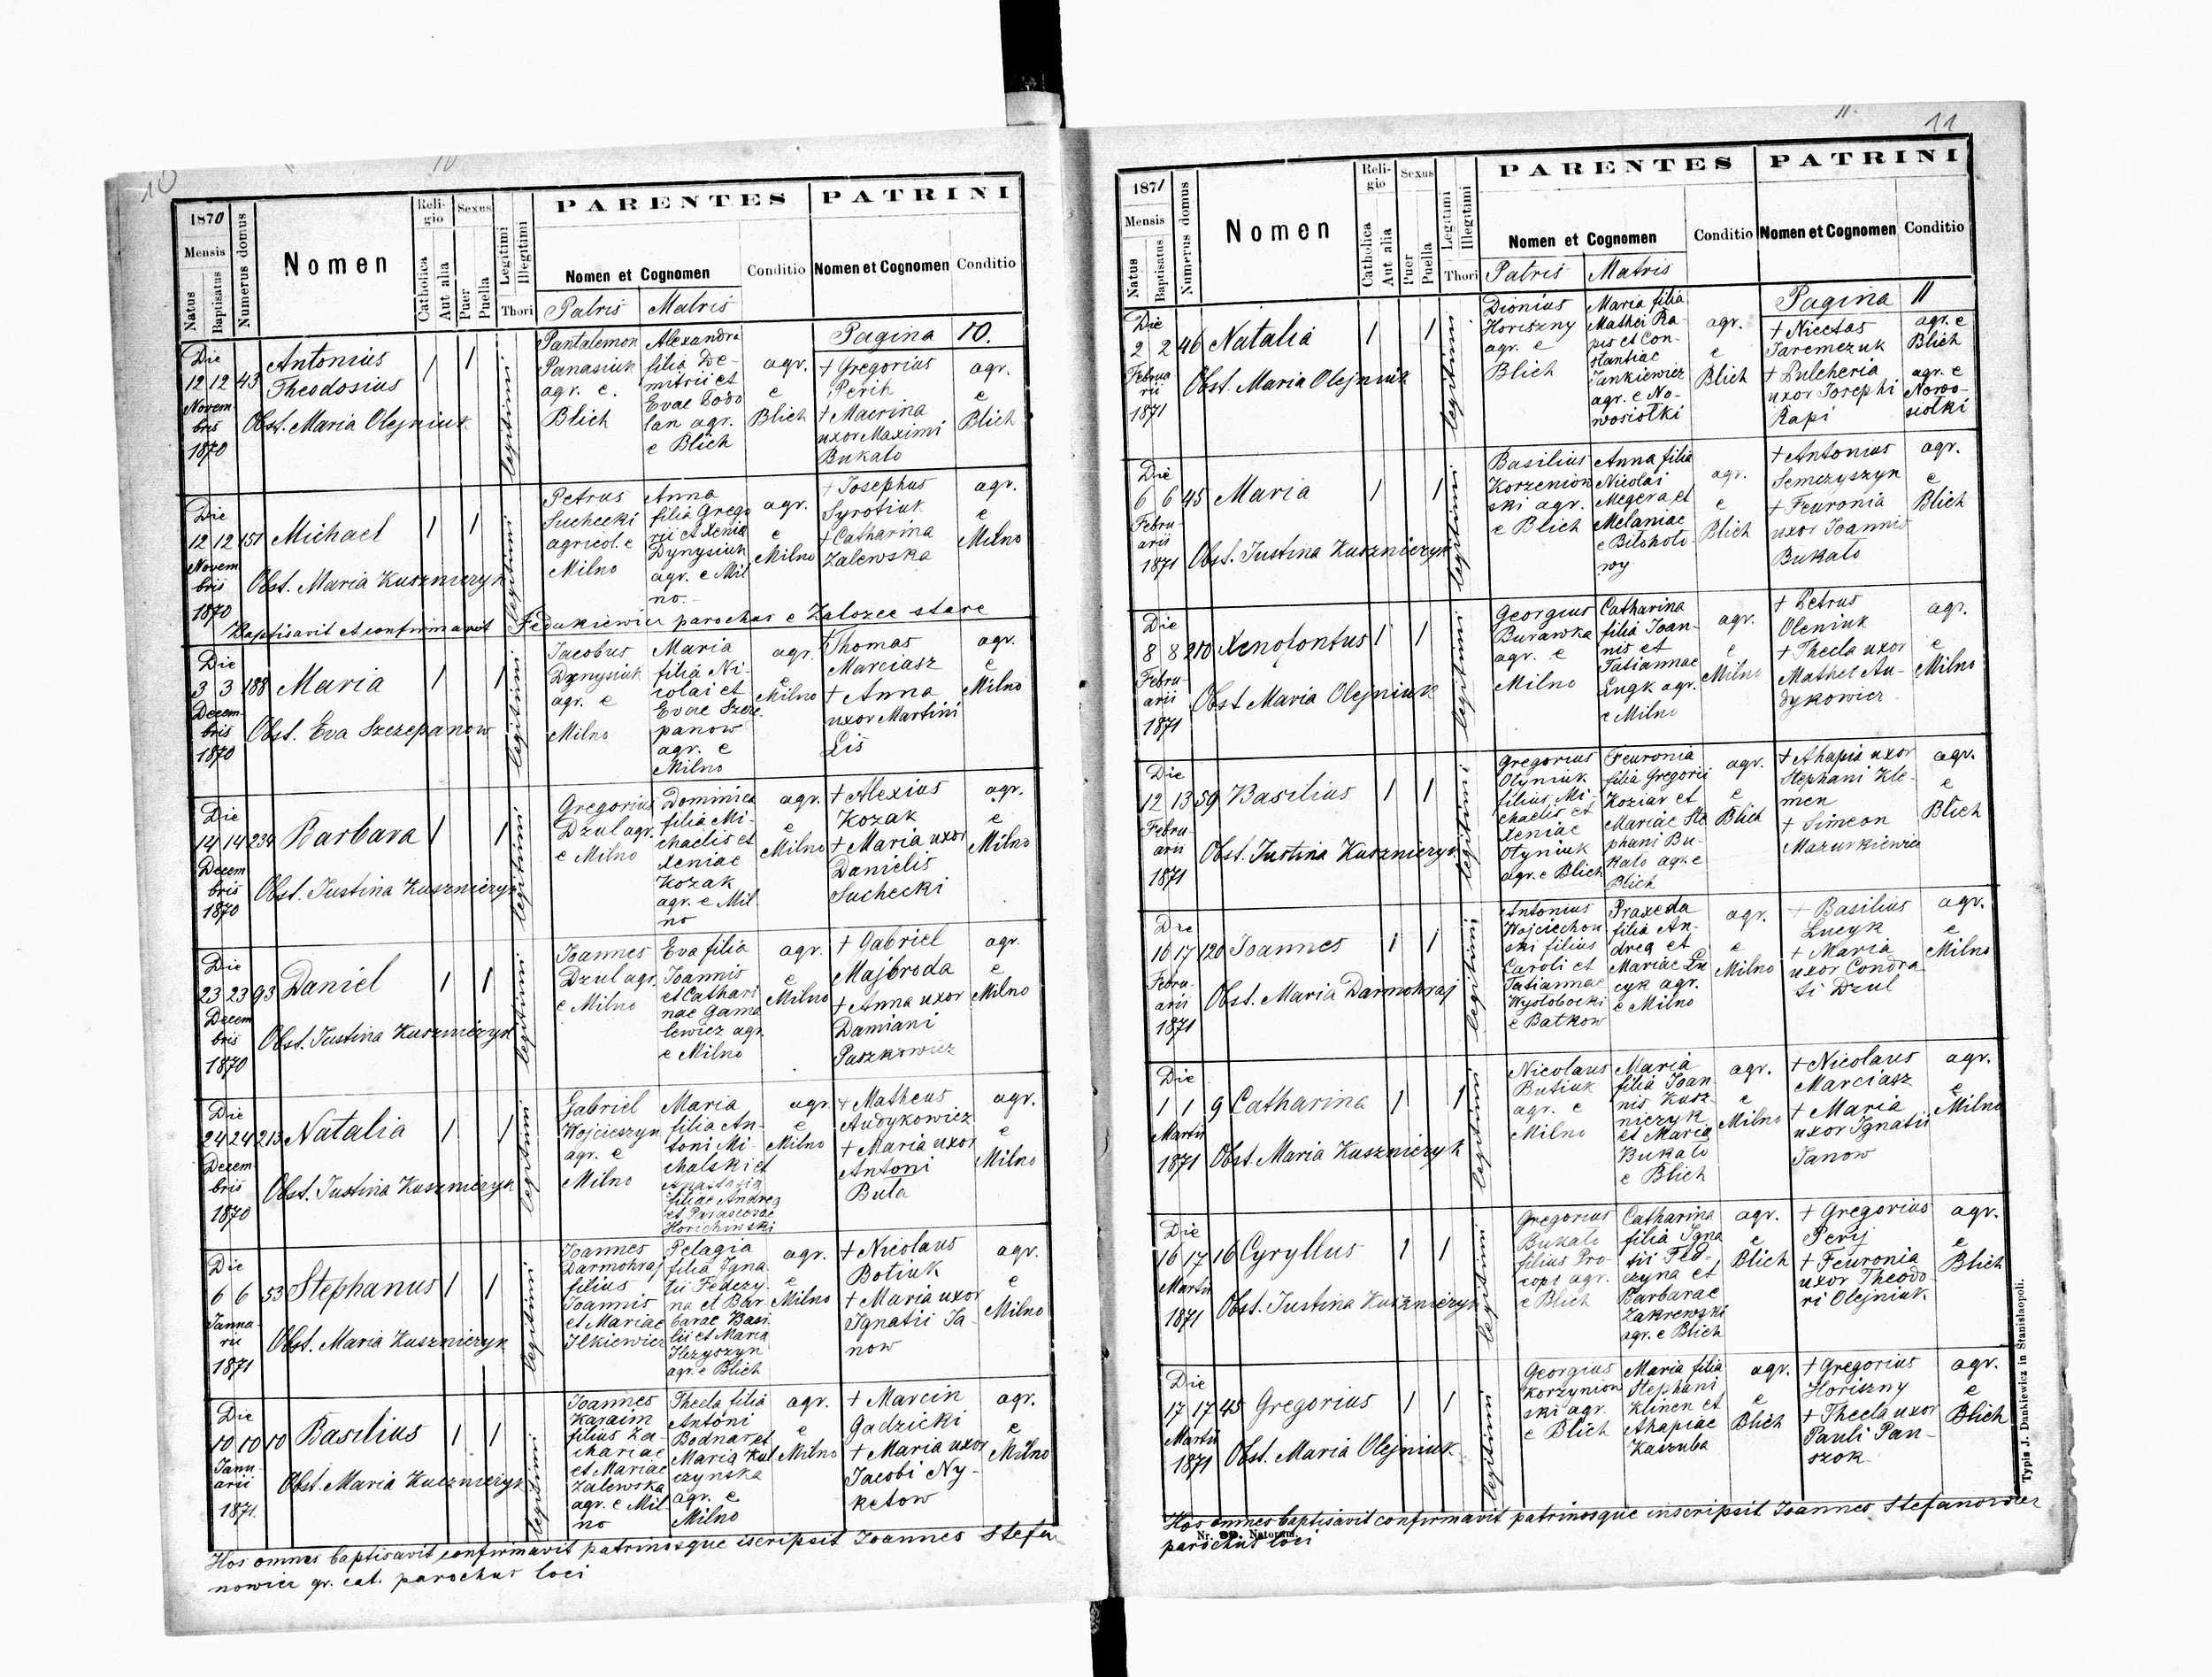 10
10
1870
Mensis
Natus
Baptisatus
Numerus domus
Nomen
Religio
Catholica
Aut alia
Sexus
Puer
Puella
Legitimi
Illegitimi
Thori
PARENTES
Nomen et Cognomen
Patris
Matris
Conditio
PATRINI
Nomen et Cognomen
Conditio
Pagina 10.
Die
12 12 43 Antonius
Theodosius
Novem
bris
1870
Obst. Maria Olejniuk
legitimi
Pantalemon
Panasiuk
agr. e.
Blich
Alexandra
filia De-
mitrii et
Evae Bodo
lan agr.
e Blich
agr.
e
Blich
+ Gregorius
Perih
+ Macrina
uxor Maximi
Bukato
agr.
e
Blich
Die
12 12 151 Michael
Novem
bris
1870
Obst. Maria Kuszniczyk
legitimi
Petrus
Suchecki
agricol. e
Milno
Anna
filia Grego
rii et Xenia
Dynysiuk
agr. e Mil
no.
agr.
e
Milno
+ Josephus
Syrotiuk
+ Catharina
Zalewska
agr.
e
Milno
Baptisavit et confirmavit Fedukiewicz parochus e Zalozce stare
Die
3 3 188 Maria
Decem
bris
1870
Obst. Eva Szczepanow
legitimi
Jacobus
Dynysiuk
agr. e
Milno
Maria
filia Ni-
colai et
Evae Szcze
panow
agr. e
Milno
agr.
e
Milno
Thomas
Marciasz
+ Anna
uxor Martini
Lis
agr.
e
Milno
Die
14 14 234 Barbara
Decem
bris
1870
Obst. Justina Kuszniczyk
legitimi
Gregorius
Dzul agr.
e Milno
Dominica
filia Mi-
chaelis et
Xeniae
Kozak
agr. e Mil
no
agr.
e
Milno
+ Alexius
Kozak
+ Maria uxor
Danielis
Suchecki
agr.
e
Milno
Die
23 23 93 Daniel
Decem
bris
1870
Obst. Justina Kuszniczyk
legitimi
Joannes
Dzul agr.
e Milno
Eva filia
Joannis
et Cathari
nae Gama
lewicz agr.
e Milno
agr.
e
Milno
+ Gabriel
Majbroda
+ Anna uxor
Damiani
Paszkowicz
agr.
e
Milno
Die
24 24 213 Natalia
Decem
bris
1870
Obst. Justina Kuszniczyk
legitimi
Gabriel
Wojcieszyn
agr. e
Milno
Maria
filia An-
toni Mi-
chalski et
Anastasia
filiae Andrea
et Parascevae
Horichiwski
agr.
e
Milno
+ Matheus
Audykowicz
+ Maria uxor
Antoni
Buta
agr.
e
Milno
Die
6 6 53 Stephanus
Janua
rii
1871
Obst. Maria Kuszniczyk
legitimi
Joannes
Darmohraj
filius
Joannis
et Mariae
Ilkiewicz
Pelagia
filia Igna
tii Fedczy-
na et Bar
barae Basi
lii et Maria
Ilczyszyn
agr. e Blich
agr.
e
Milno
+ Nicolaus
Botiuk
+ Maria uxor
Ignatii Ja-
now
agr.
e
Milno
Die
10 10 10 Basilius
Janu
arii
1871.
Obst. Maria Kuszniczyk
legitimi
Joannes
Karaim
filius Za-
chariae
et Mariae
Zalewska
agr. e Mil
no
Thecla filia
Antoni
Bodnar et
Maria Kul
czynska
agr. e
Milno
agr.
e
Milno
+ Marcin
Gadzicki
+ Maria uxor
Jacobi Ny-
ketow
agr.
e
Milno
Hos omnes baptisavit confirmavit patrinosque iscripsit Joannes Stefa
nowicz gr. cat. parochus loci
11.
11
1871
Mensis
Natus
Baptisatus
Numerus domus
Nomen
Religio
Catholica
Aut alia
Sexus
Puer
Puella
Legitimi
Illegitimi
Thori
PARENTES
Nomen et Cognomen
Patris
Matris
Conditio
PATRINI
Nomen et Cognomen
Conditio
Pagina 11
Die
2 2 46 Natalia
Februa
rii
1871
Obst. Maria Olejniuk
legitimi
Dionius
Horiszny
agr. e
Blich
Maria filia
Mathei Ra-
pis et Con-
stantiae
Jankiewicz
agr. e No-
wosiołki
agr.
e
Blich
+ Nicetas
Jaremczuk
+ Pulcheria
uxor Josephi
Rapi
agr. e
Blich
agr. e
Nowo-
siołki
Die
6 6 45 Maria
Febru-
arii
1871
Obst. Justina Kuszniczyk
legitimi
Basilius
Korzenion
ski agr.
e Blich
Anna filia
Nicolai
Megera et
Melaniae
e Bilokolo
wy
agr.
e
Blich
+ Antonius
Semczyszyn
+ Feuronia
uxor Joannis
Bukato
agr.
e
Blich
Die
8 8 210 Xenofontus
Febru-
arii
1871
Obst Maria Olejniuk
legitimi
Georgius
Burawka
agr. e
Milno
Catharina
filia Joan-
nis et
Tatiannae
Lugk agr.
e Milno
agr.
e
Milno
+ Petrus
Oleniuk
+ Thecla uxor
Mathei Au-
dykowicz
agr.
e
Milno
Die
12 13 59 Basilius
Febru-
arii
1871
Obst. Justina Kuszniczyk
legitimi
Gregorius
Olyniuk
filius Mi-
chaelis et
Xeniae
Olyniuk
agr. e Blich
Feuronia
filia Gregorii
Koziar et
Mariae Ste
phani Bu-
kato agr. e
Blich
agr.
e
Blich
+ Ahapia uxor
Stephani Kle-
men
+ Simeon
Mazurkiewicz
agr.
e
Blich
Die
16 17 120 Joannes
Febru-
arii
1871
Obst. Maria Darmohraj
legitimi
Antonius
Wojciechow
ski filius
Caroli et
Tatiannae
Wysłobocki
e Batkow
Praxeda
filia An-
drea et
Mariae Lu
cyk agr.
e Milno
agr.
e
Milno
+ Basilius
Lucyk
+ Maria
uxor Condra
ti Dzul
agr.
e
Milno
Die
1 1 9 Catharina
Martii
1871
Obst. Maria Kuszniczyk
legitimi
Nicolaus
Butiuk
agr. e
Milno
Maria
filia Joan-
nis Kusz-
niczyk
et Maria
Bukato
e Blich
agr.
e
Milno
+ Nicolaus
Marciasz
+ Maria
uxor Ignatii
Janow
agr.
e
Milno
Die
16 17 16 Cyryllus
Martii
1871
Obst. Justina Kuszniczyk
legitimi
Gregorius
Bukato
filius Pro-
copi agr.
e Blich
Catharina
filia Igna
tii Fed-
czyna et
Barbarae
Zakrewski
agr. e Blich
agr.
e
Blich
+ Gregorius
Peryj
+ Feuronia
uxor Theodo-
ri Olejniuk.
agr.
e
Blich
Die
17 17 45 Gregorius
Martii
1871
Obst. Maria Olejniuk
legitimi
Georgius
Korzynion
ski agr.
e Blich
Maria filia
Stephani
Klinen et
Ahapiae
Kaszuba
agr.
e
Blich
+ Gregorius
Horiszny
+ Thecla uxor
Pauli Pan-
szok
agr.
e
Blich
Hos omnes baptisavit confirmavit patrinosque inscripsit Joannes Stefanowicz
Nr. 99. Natorum.
parochus loci
Typis J. Dankiewicz in Stanislaopoli.